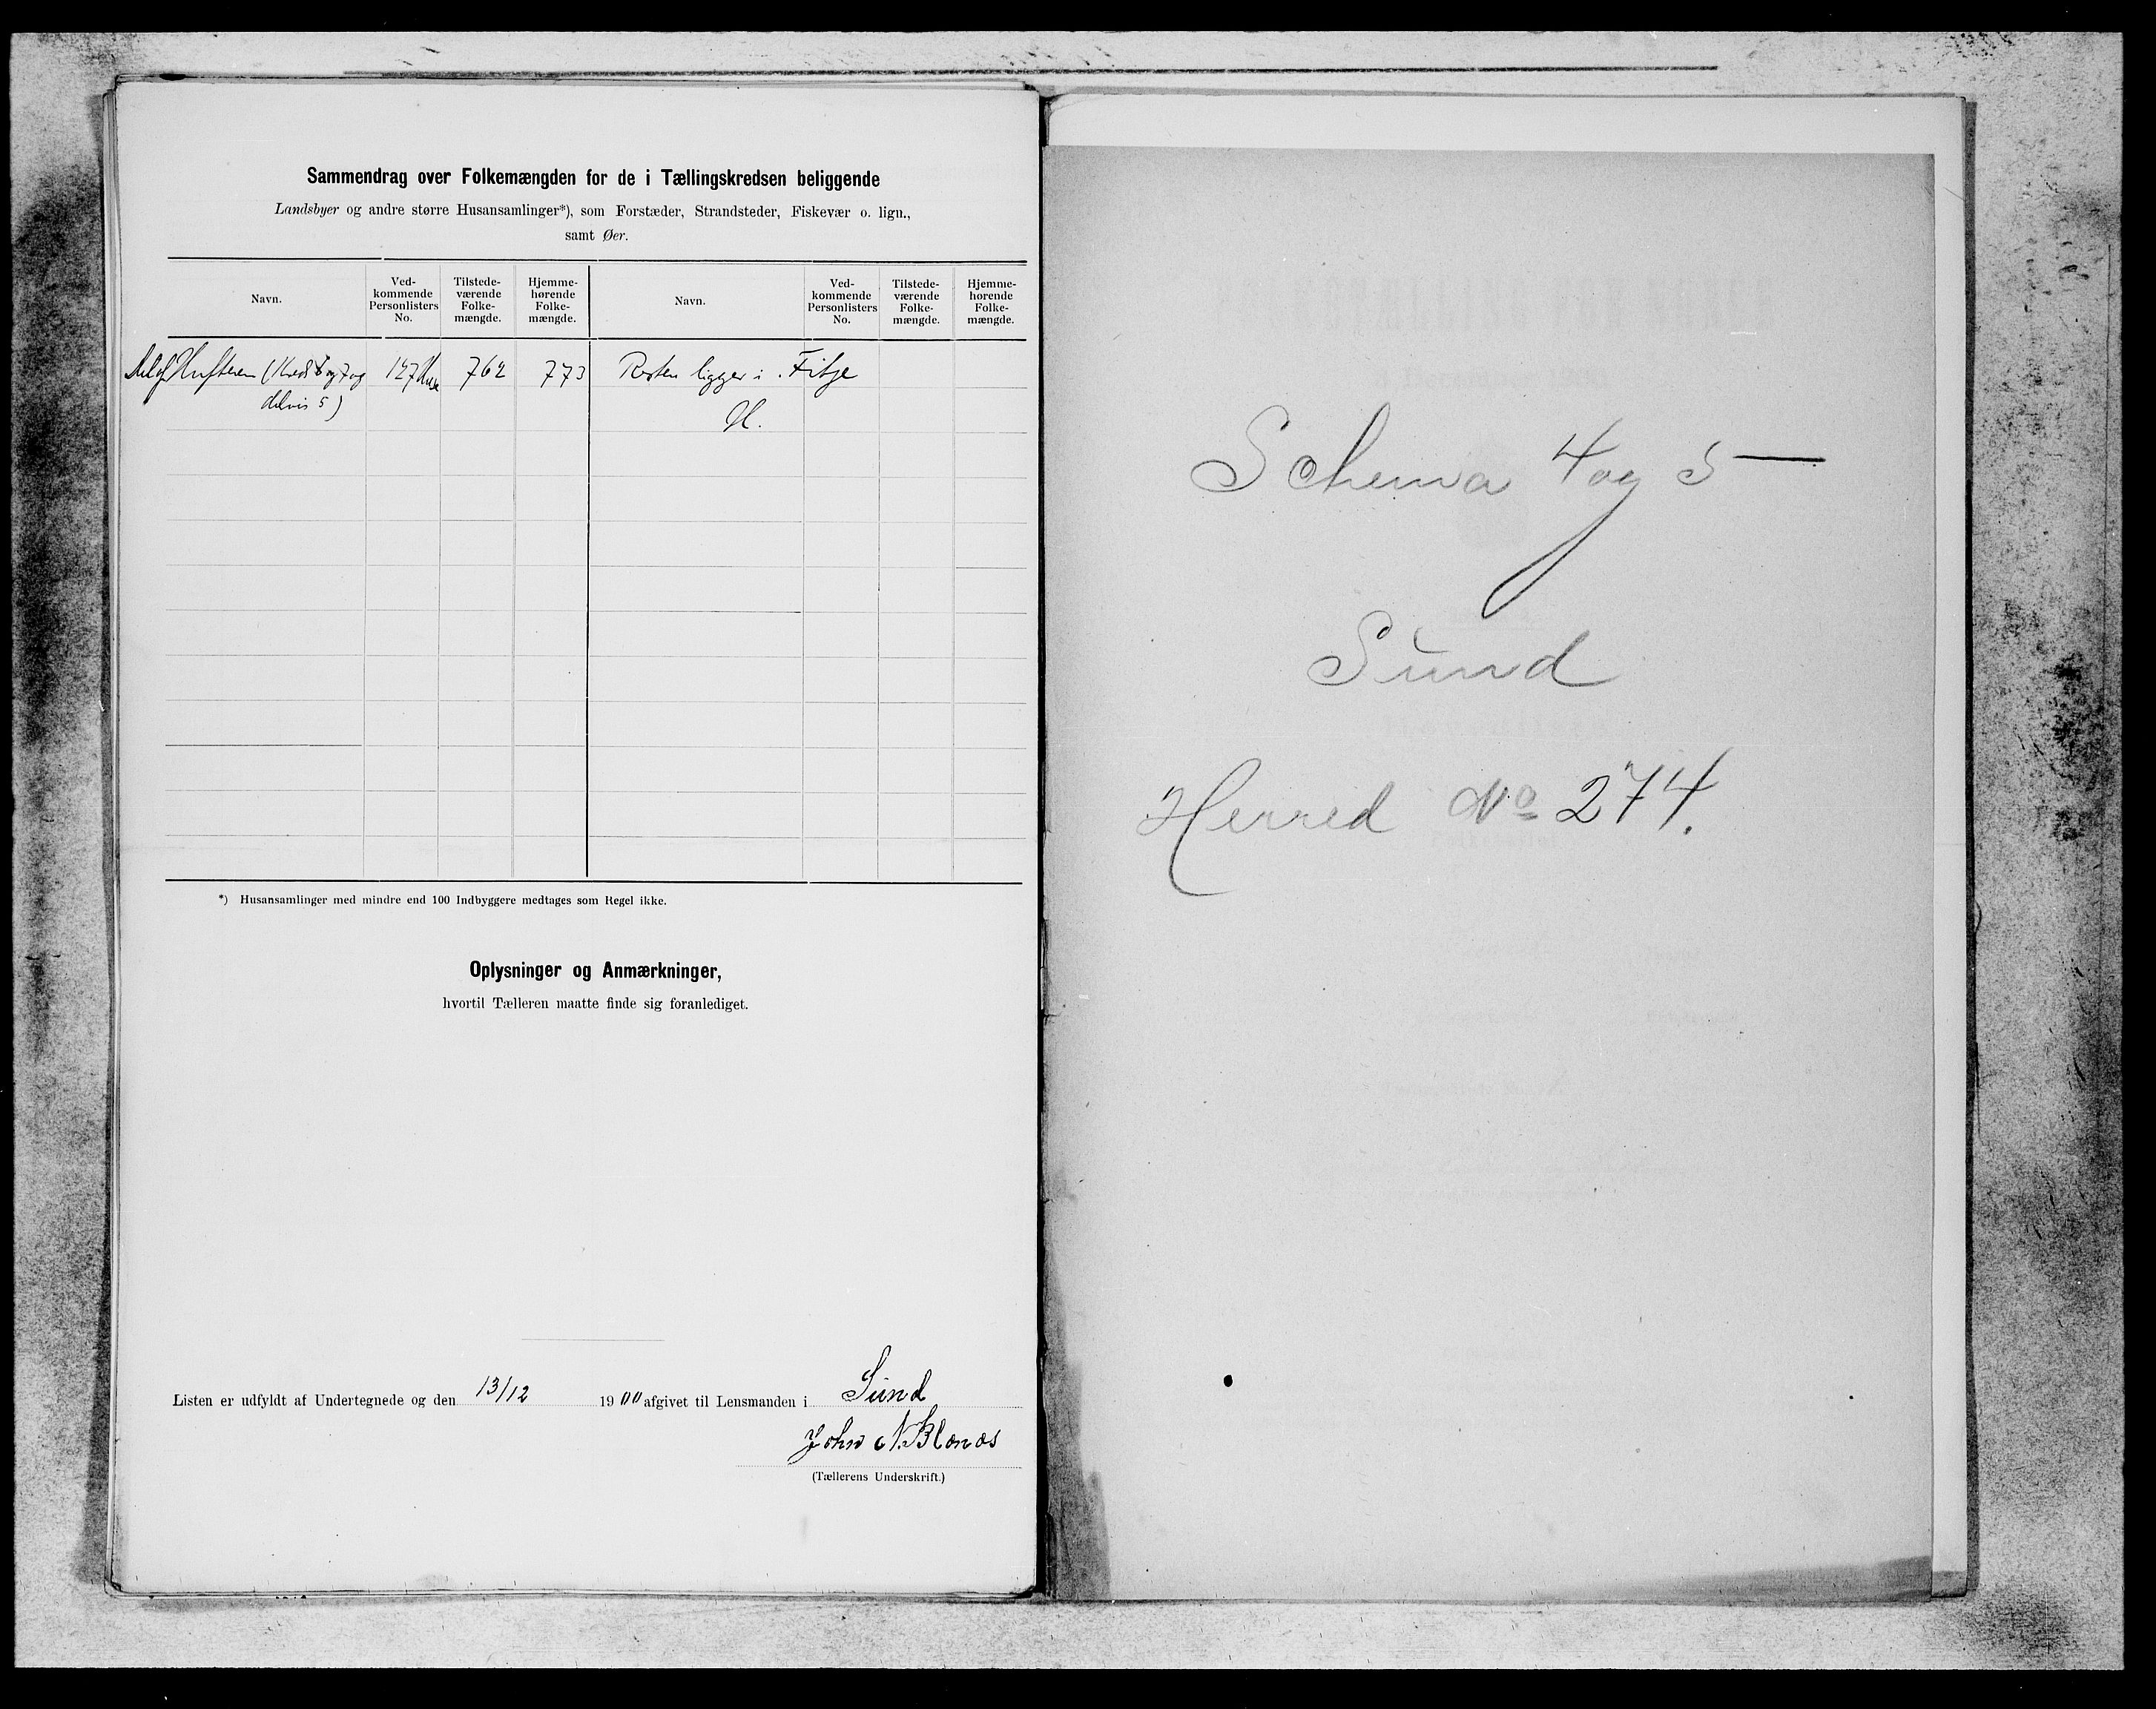 Sammendrag over Folkemængden for de i Tællingskredsen beliggende
Landsbyer og andre større Husansamlinger*), som Forstæder, Strandsteder, Fiskevær o. lign.,
samt Øer.
Navn.
Ved-
kommende
Personlisters
No.
Tilstede-
værende
Folke-
mængde.
Hjemme-
hørende
Folke-
mængde.
Navn.
Ved-
kommende
Personlisters
No.
Tilstede-
værende
Folke-
mængde.
Hjemme-
hørende
Folke-
mængde.
Del af Huftern (Kreds 6 og 7 og 127 Huse 762 773 Resten ligger i Fitje
delvis 5) H.
*) Husansamlinger med mindre end 100 Indbyggere medtages som Regel ikke.
Oplysninger og Anmærkninger,
hvortil Tælleren maatte finde sig foranlediget.
Listen er udfyldt af Undertegnede og den 13/12 1900 afgivet til Lensmanden i Sund
John N. Blænæs
(Tællerens Underskrift.)
Schema 4 og 5 —
Sund
Herred No 274.